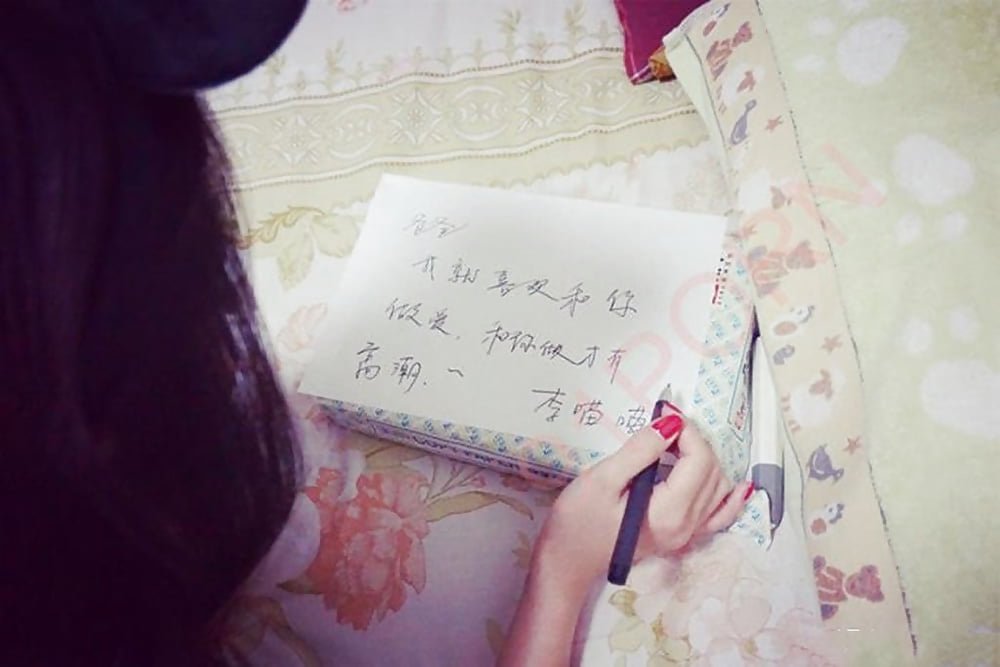 爸爸
我就喜欢和你
做爱,和你做才有
高潮.~
李喵